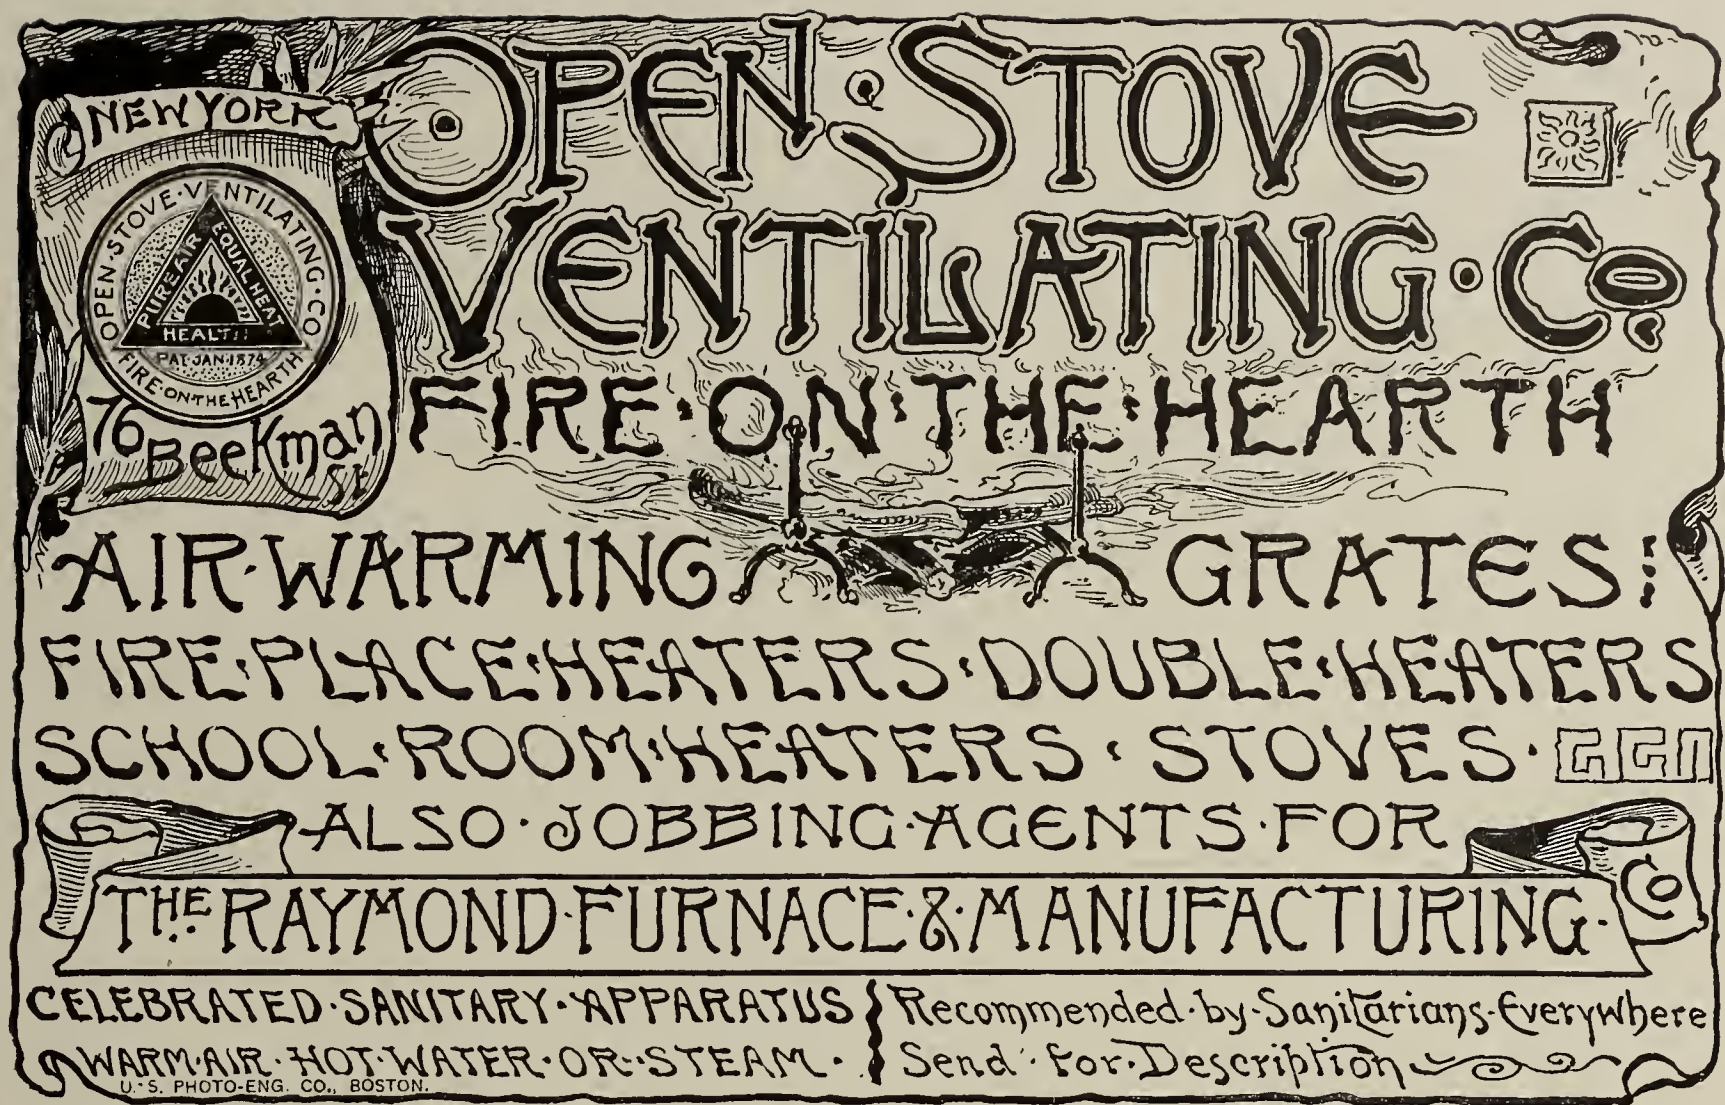 NEW YORK
OPEN·STOVE·VENTILATING·CO
PURE AIR
EQUAL HEAT
HEALTH
PAT·JAN·1874
FIRE·ON·THE·HEARTH
76
Beekman
St
OPEN·STOVE
VENTILATING·Co
FIRE·ON·THE·HEARTH
AIR·WARMING GRATES
FIRE·PLACE·HEATERS·DOUBLE·HEATERS
SCHOOL·ROOM·HEATERS·STOVES·
ALSO·JOBBING·AGENTS·FOR
THE RAYMOND·FURNACE·&·MANUFACTURING·Co
CELEBRATED·SANITARY·APPARATUS
WARM·AIR·HOT·WATER·OR·STEAM·
Recommended·by·Sanitarians·Everywhere
Send·for·Description
U.S. PHOTO-ENG. CO., BOSTON.